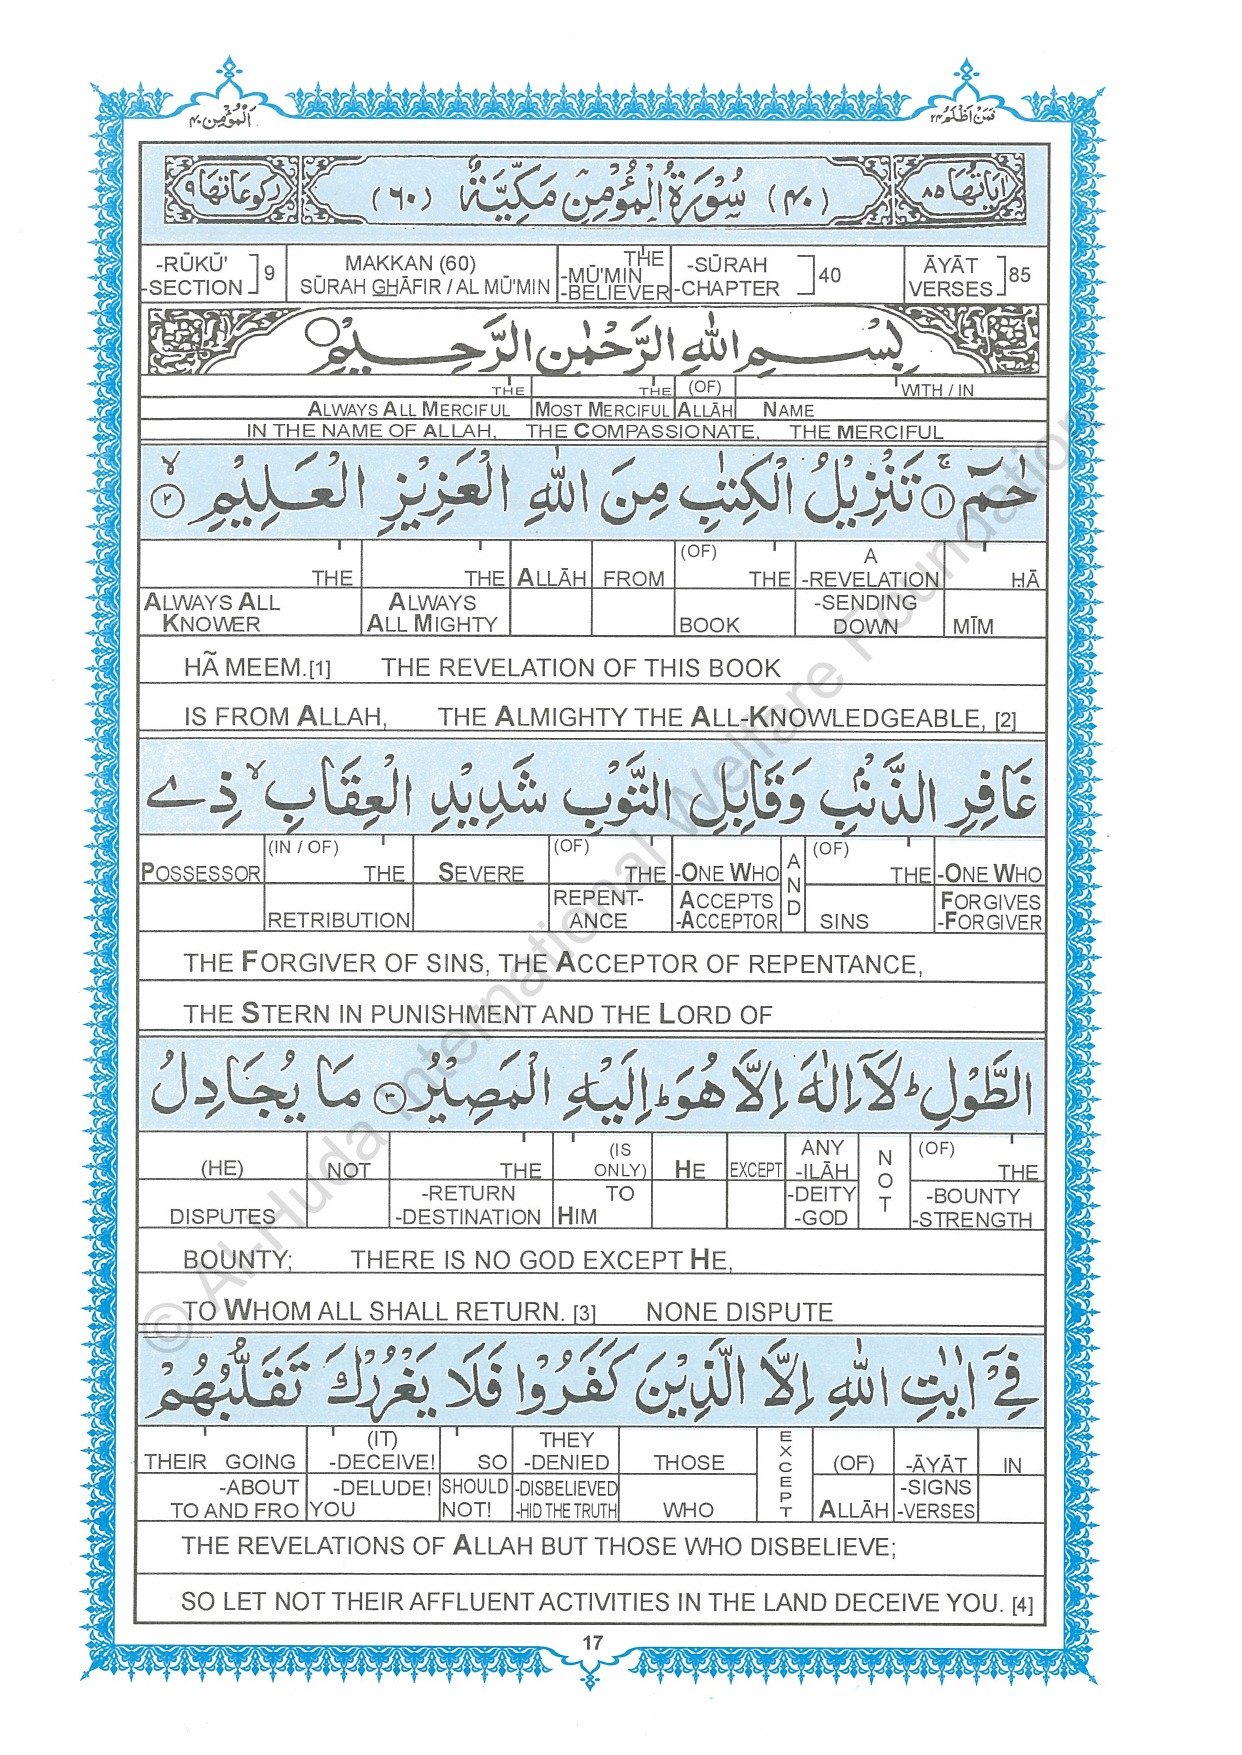 اَلْمُؤْمِن ۴۰
فَمَنْ اَظْلَمُ ۲۴
اٰيَاتُهَا ۸۵ (۴۰) سُوْرَةُ الْمُؤْمِنِ مَكِّيَّةٌ (۶۰) رُكُوْعَاتُهَا ۹
-RŪKŪ' MAKKAN (60) THE -SŪRAH ĀYĀT
-SECTION ] 9 SŪRAH GHĀFIR / AL MŪ'MIN -MŪ'MIN -BELIEVER -CHAPTER ] 40 VERSES ] 85
بِسْمِ اللّٰهِ الرَّحْمٰنِ الرَّحِيْمِ
THE THE (OF) WITH / IN
ALWAYS ALL MERCIFUL MOST MERCIFUL ALLĀH NAME
IN THE NAME OF ALLAH, THE COMPASSIONATE, THE MERCIFUL
حٰمٓ ۚ ۱ تَنْزِيْلُ الْكِتٰبِ مِنَ اللّٰهِ الْعَزِيْزِ الْعَلِيْمِ ۙ ۲
THE THE ALLĀH FROM (OF) THE A -REVELATION HĀ
ALWAYS ALL KNOWER ALWAYS ALL MIGHTY BOOK -SENDING DOWN MĪM
HÃ MEEM.[1] THE REVELATION OF THIS BOOK
IS FROM ALLAH, THE ALMIGHTY THE ALL-KNOWLEDGEABLE, [2]
غَافِرِ الذَّنْۢبِ وَقَابِلِ التَّوْبِ شَدِيْدِ الْعِقَابِ ۙ ذِى
POSSESSOR (IN / OF) THE SEVERE (OF) THE -ONE WHO AND (OF) THE -ONE WHO
RETRIBUTION REPENT-ANCE ACCEPTS -ACCEPTOR SINS FORGIVES -FORGIVER
THE FORGIVER OF SINS, THE ACCEPTOR OF REPENTANCE,
THE STERN IN PUNISHMENT AND THE LORD OF
الطَّوْلِ ؕ لَاۤ اِلٰهَ اِلَّا هُوَ ؕ اِلَيْهِ الْمَصِيْرُ ۳ مَا يُجَادِلُ
(HE) NOT THE (IS ONLY) HE EXCEPT ANY -ILĀH NOT (OF) THE
DISPUTES -RETURN -DESTINATION TO HIM -DEITY -GOD -BOUNTY -STRENGTH
BOUNTY; THERE IS NO GOD EXCEPT HE,
TO WHOM ALL SHALL RETURN. [3] NONE DISPUTE
فِىْۤ اٰيٰتِ اللّٰهِ اِلَّا الَّذِيْنَ كَفَرُوْا فَلَا يَغْرُرْكَ تَقَلُّبُهُمْ
THEIR GOING (IT) -DECEIVE! SO THEY -DENIED THOSE EXCEPT (OF) -ĀYĀT IN
-ABOUT TO AND FRO -DELUDE! YOU SHOULD NOT! -DISBELIEVED -HID THE TRUTH WHO ALLĀH -SIGNS -VERSES
THE REVELATIONS OF ALLAH BUT THOSE WHO DISBELIEVE;
SO LET NOT THEIR AFFLUENT ACTIVITIES IN THE LAND DECEIVE YOU. [4]
17
© Al-Huda International Welfare Foundation